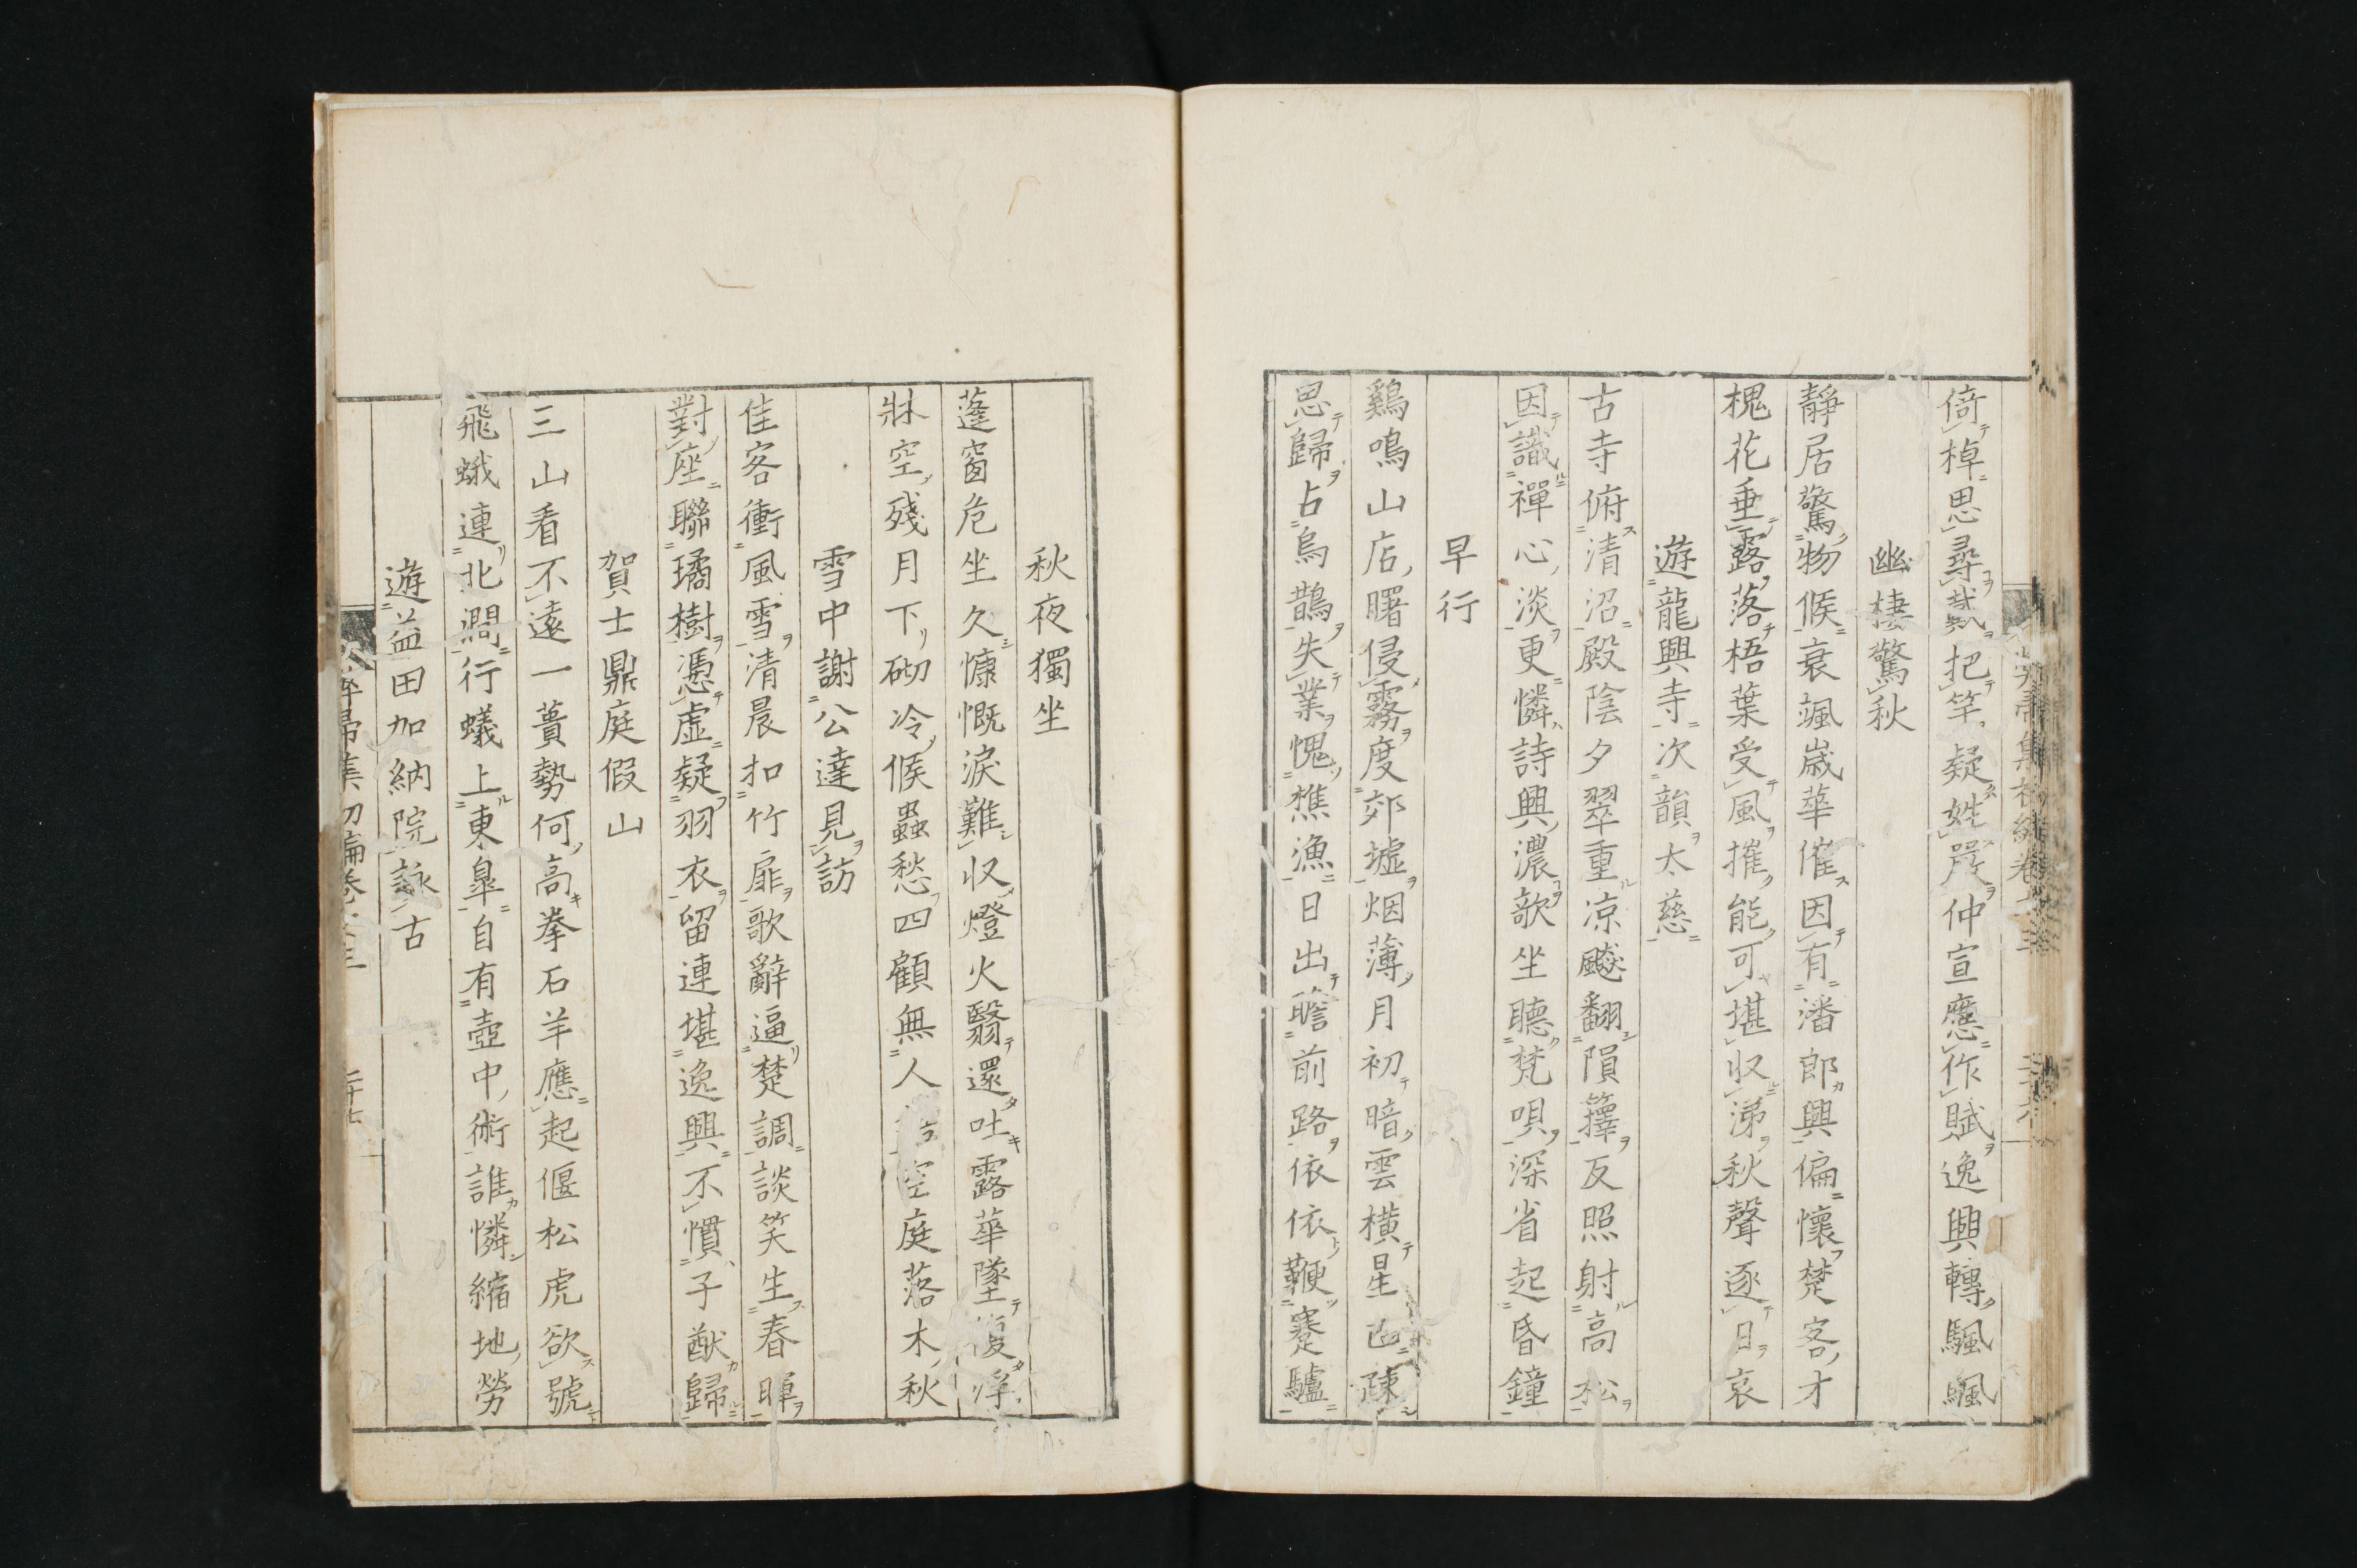 倚棹思尋戴把竿疑姓嚴仲宣應作賦逸興轉颿颿
幽棲驚秋
靜居驚物候衰颯歲華催因有潘郎興偏懷楚客才
槐花垂露落梧葉受風摧能可堪收涕秋聲逐日哀
遊龍興寺次韻太慈
古寺俯清沼殿陰夕翠重凉飈翻隕籜反照射高松
因識禪心淡更憐詩興濃歆坐聽梵唄深省起昏鐘
早行
鷄鳴山店曙侵霧度郊墟烟薄月初暗雲橫星已疎
思歸占烏鵲失業愧樵漁日出瞻前路依依鞭蹇驢
秋夜獨坐
蓬窗危坐久慷慨淚難收燈火翳還吐露華墜復浮
牀空殘月下砌冷候蟲愁四顧無人空庭落木秋
雪中謝公達見訪
佳客衝風雪清晨扣竹扉歌辭逼楚調談笑生春暉
對座聯璚樹憑虛疑羽衣留連堪逸興不慣子猷歸
賀士鼎庭假山
三山看不遠一蕢勢何高拳石羊應起偃松虎欲號
飛蛾連北澗行蟻上東皐自有壺中術誰憐縮地勞
遊益田加納院詠古
歸集初編卷之三 二十七